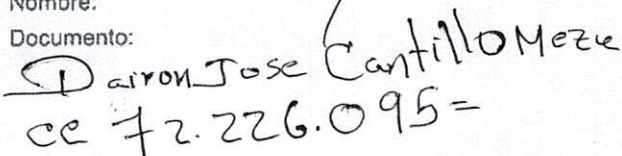 Nombre:
Documento:
Dairon Jose Cantillo Meze
cc 72.226.095=